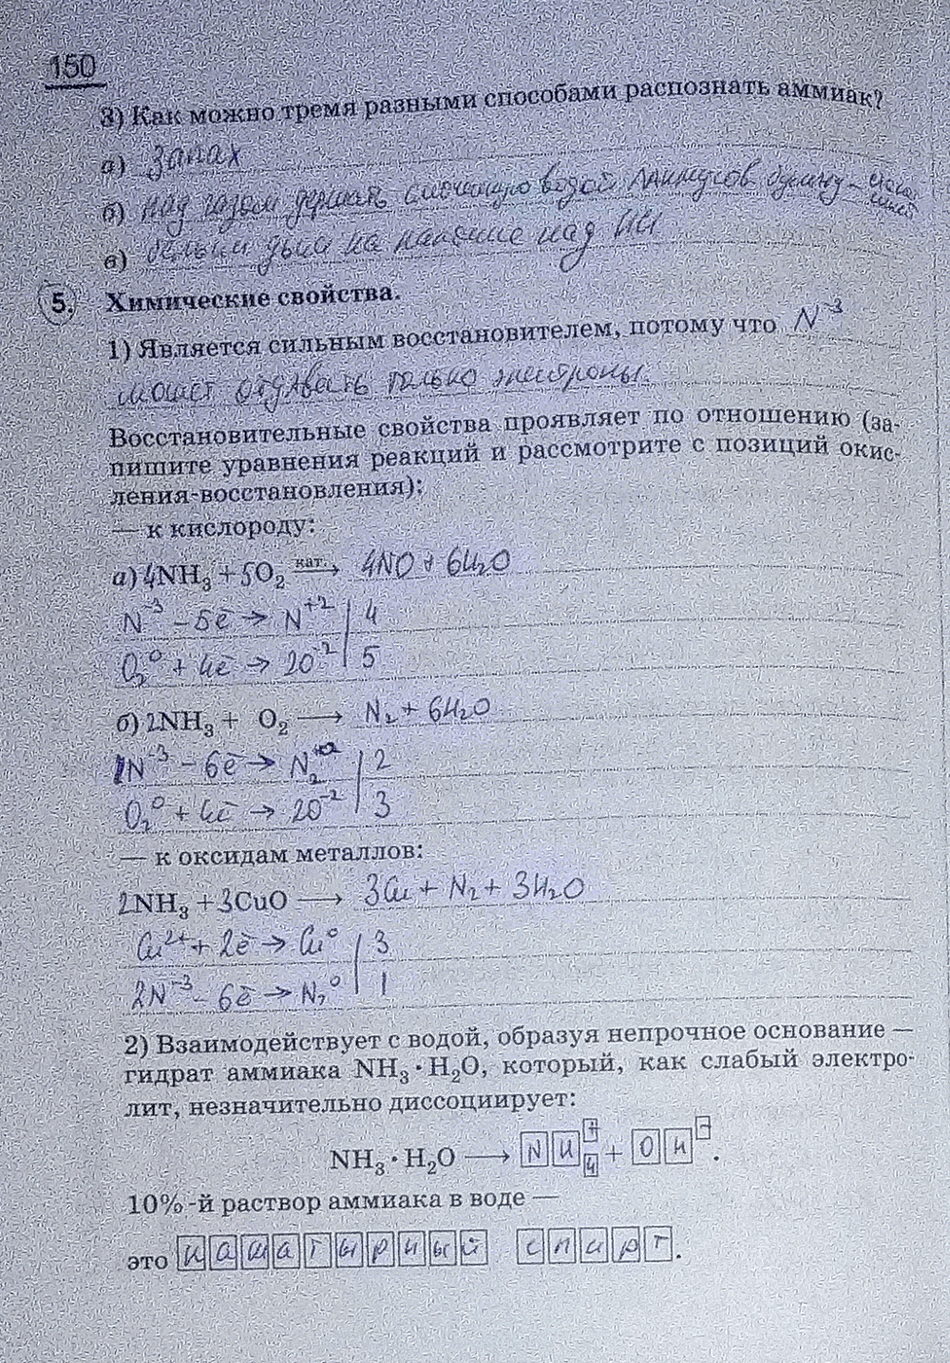 150
3) Как можно тремя разными способами распознать аммиак?
а) Запах
б) Над газом держать смоченную водой лакмусов бумагу -
в) белый дым на над HCl
5. Химические свойства.
1) Является сильным восстановителем, потому что N⁻³
может отдавать только электроны.
Восстановительные свойства проявляет по отношению (за-
пишите уравнения реакций и рассмотрите с позиций окис-
ления-восстановления):
— к кислороду:
а) 4NH₃ + 5O₂ кат. → 4NO + 6H₂O
N⁻³ - 5ē → N⁺² | 4
O₂⁰ + 4ē → 2O⁻² | 5
б) 2NH₃ + O₂ → N₂ + 6H₂O
2N⁻³ - 6ē → N₂⁰ | 2
O₂⁰ + 4ē → 2O⁻² | 3
— к оксидам металлов:
2NH₃ + 3CuO → 3Cu + N₂ + 3H₂O
Cu²⁺ + 2ē → Cu⁰ | 3
2N⁻³ - 6ē → N₂⁰ | 1
2) Взаимодействует с водой, образуя непрочное основание —
гидрат аммиака NH₃ · H₂O, который, как слабый электро-
лит, незначительно диссоциирует:
NH₃ · H₂O → NH₄⁺ + OH⁻.
10%-й раствор аммиака в воде —
это нашатырный спирт.